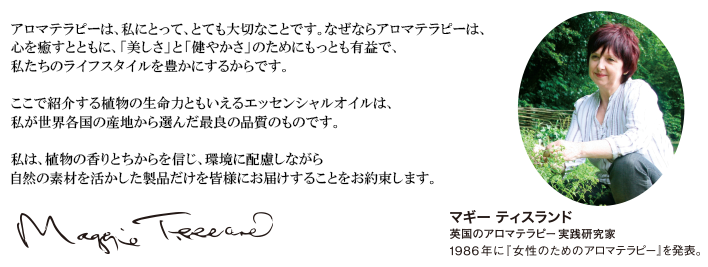 アロマテラピーは、私にとって、とても大切なことです。なぜならアロマテラピーは、
心を癒すとともに、「美しさ」と「健やかさ」のためにもっとも有益で、
私たちのライフスタイルを豊かにするからです。
ここで紹介する植物の生命力ともいえるエッセンシャルオイルは、
私が世界各国の産地から選んだ最良の品質のものです。
私は、植物の香りとちからを信じ、環境に配慮しながら
自然の素材を活かした製品だけを皆様にお届けすることをお約束します。
Maggie Tisserand
マギー ティスランド
英国のアロマテラピー実践研究家
1986年に『女性のためのアロマテラピー』を発表。